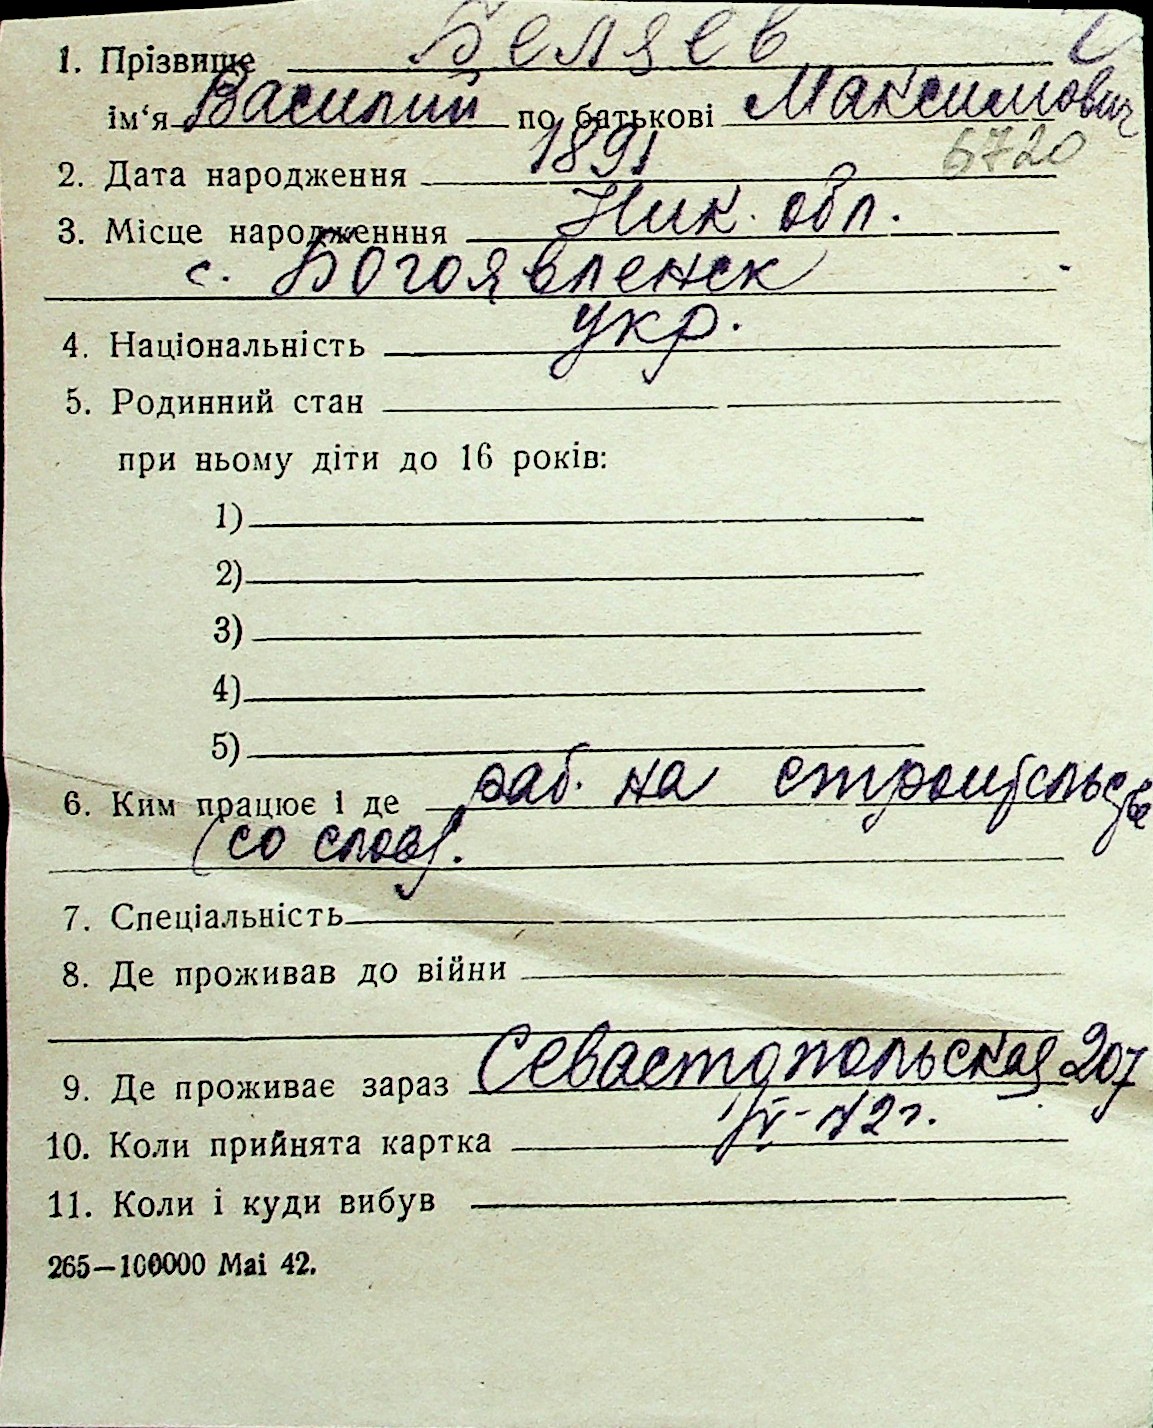 1. Прізвище Беляев
ім‘я Василий по батькові Максимович
6720
2. Дата народження 1891
3. Місце народженння Ник. обл.
с. Богоявленск
4. Національність укр.
5. Родинний стан
при ньому діти до 16 років:
1)
2)
3)
4)
5)
6. Ким працює і де раб. на строительстве
(со слов).
7. Спеціальність
8. Де проживав до війни
9. Де проживає зараз Севастопольская 207
10. Коли прийнята картка IV-42 г.
11. Коли і куди вибув
265—100000 Mai 42.